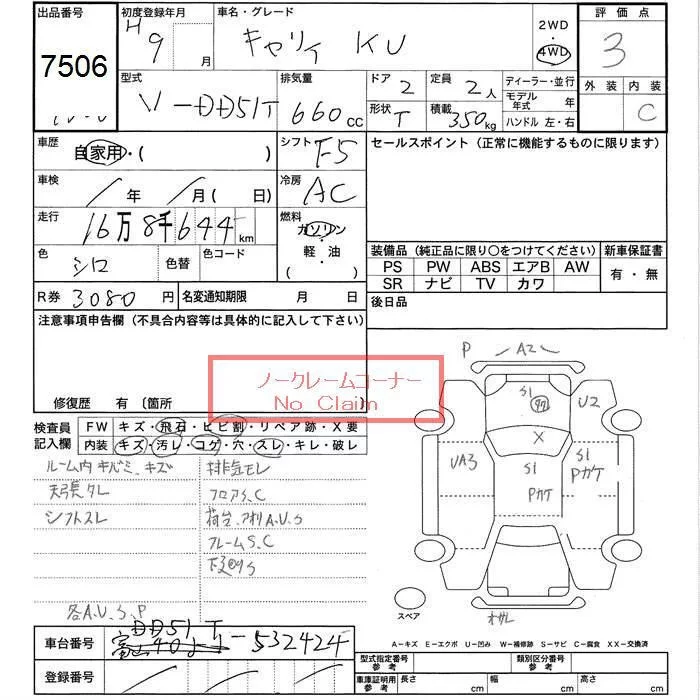 出品番号 7506
初度登録年月 H 9 月
車名・グレード キャリィ KU
2WD ・ 4WD
評価点 3
外装 内装 C
型式 V-DD51T
排気量 660 cc
ドア 2
定員 2人
形状 T
積載 350kg
ディーラー・並行
モデル年式 年
ハンドル 左・右
車歴 自家用・( )
シフト F5
セールスポイント(正常に機能するものに限ります)
車検 / 年 / 月( 日)
冷房 AC
走行 16万8千644km
燃料 ガソリン・軽・油( )
色 シロ 色替 色コード
装備品(純正品に限り○をつけてください) 新車保証書
PS PW ABS エアB AW
SR ナビ TV カワ
有・無
R券 3080円 名変通知期限 月 日
後日品
注意事項申告欄(不具合内容等は具体的に記入して下さい)
ノークレームコーナー
No Claim
修復歴 有 〔箇所 〕
検査員記入欄
FW キズ・飛石・ヒビ割・リペア跡・X要
内装 キズ・汚レ・コゲ・穴・スレ・キレ・破レ
ルーム内 キバミ、キズ
排気モレ
天張タレ
フロアS、C
シフトスレ
荷台、アオリA.U.S
フレームS、C
下廻りS
各A.U.S.P
P A2
S1
U2
X
UA3
S1
Pカケ
S1
Pカケ
スペア
A=キズ E=エクボ U=凹み W=補修跡 S=サビ C=腐食 XX=交換済
車台番号 DD51T-532424
登録番号 / / /
型式指定番号 参考
類別区分番号 参考
車庫証明用 参考 長さ cm 幅 cm 高さ cm